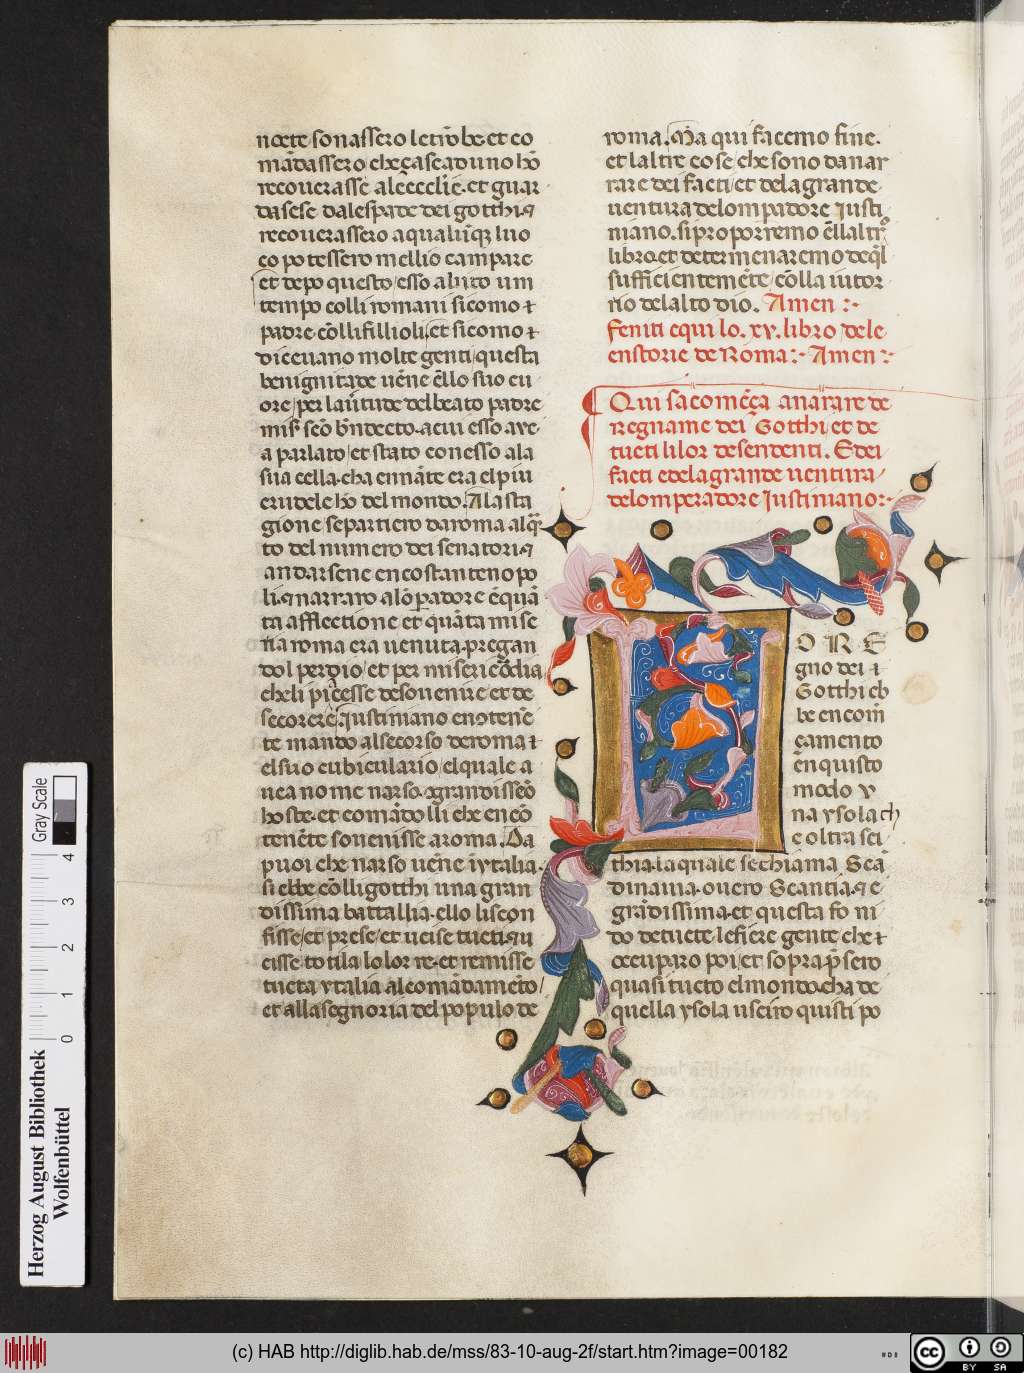 nocte sonassero le tronbe et co
mãdassero che çascaduno hõ
recouerasse a le ecclie. et guar
dasese dale spade dei gotthi.
recouerassero a qualũqʒ luo
co potessero mellio campare
et depo questo esso abito um
tempo colli romani sicomo
padre cõlli fillioli. et sicomo
diceuano molte genti questa
benignitade uẽne ello suo cu
ore per la ũtude del beato padre
mis. seõ bñdecto. a cui esso aue
a parlato et stato con esso a la
sua cella. cha ennãte era el piu
crudele hõ del mondo. A la sta
gione se partiero da roma alqʳ
to del numero dei senatori
andarsene en costantenopo
li. narraro a lõpadore e quã
ta afflectione et quãta mise
ria roma era uenuta. pregan
dol per dio et per misericõdia
che li piãcesse de souenire et de
secorere. Justiniano encotenẽ
te mando al secorso de roma
el suo cubiculario el quale a
uea nome narso. o grandisseõ
hoste. et comãdolli che encõ
tenẽte souenisse a roma. Da
puoi che narso uẽne i ytalia
si ebbe cõlli gotthi una gran
dissima battallia. ello li scon
fisse et prese et ucise tucti. u
cisse totila lo lor re. et remisse
tucta ytalia al comãdamẽto
et alla segnoria del populo de
roma. Ma qui facemo fine.
et laltre cose che sono da nar
rare dei facti et dela grande
uentura delompadore Justi
niano. si proporremo ellaltrº
libro. et determenaremo de ql
sufficientemẽte cõlla iutor
rio de lalto dio. Amen :
feniti e qui lo. xv. libro dele
enstorie de Roma : Amen :
Qui sa comẽça a narare de
Regname dei Gotthi et de
tucti li lor desendenti. E dei
facti e dela grande uentura
delomperadore Justiniano:
O R E
gno dei
Gotthi eb
be en com
çamento
en quisto
modo v
na ysola ch
e oltra sci
thia. la quale se chiama Scã
dinauia. ouero Scantia. e
grãdissima. et questa fo ni
do de tucte le fiere gente che
occuparo poi et sopraṕsero
quasi tucto el mondo. cha de
quella ysola usciro quisti po
Herzog August Bibliothek
Wolfenbüttel
Gray Scale
0 1 2 3 4
(c) HAB http://diglib.hab.de/mss/83-10-aug-2f/start.htm?image=00182
cc BY SA